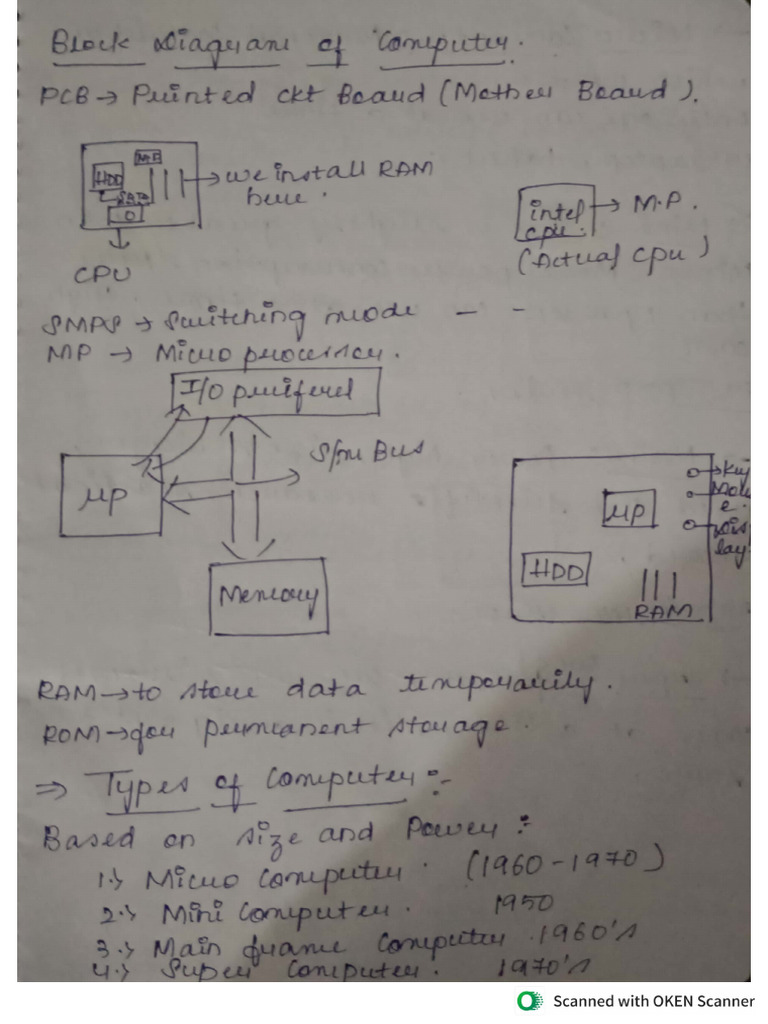 Block Diagram of Computer.
PCB → Printed ckt Board (Mother Board).
M.P
HDD
→ we install RAM
here.
CPU
intel
cpu.
→ M.P.
(Actual cpu)
SMPS → Switching mode — -
MP → Micro processer.
I/O periferel
Bus
μP
Memory
Mou
e.
Dis
lay
μP
HDD
RAM
RAM → to store data temporarily.
ROM → for permanent storage.
⇒ Types of Computer :-
Based on size and Power :
1.> Micro Computer. (1960-1970)
2.> Mini Computer. 1950
3.> Main frame Computer. 1960's
4.> Super Computer. 1970's
Scanned with OKEN Scanner